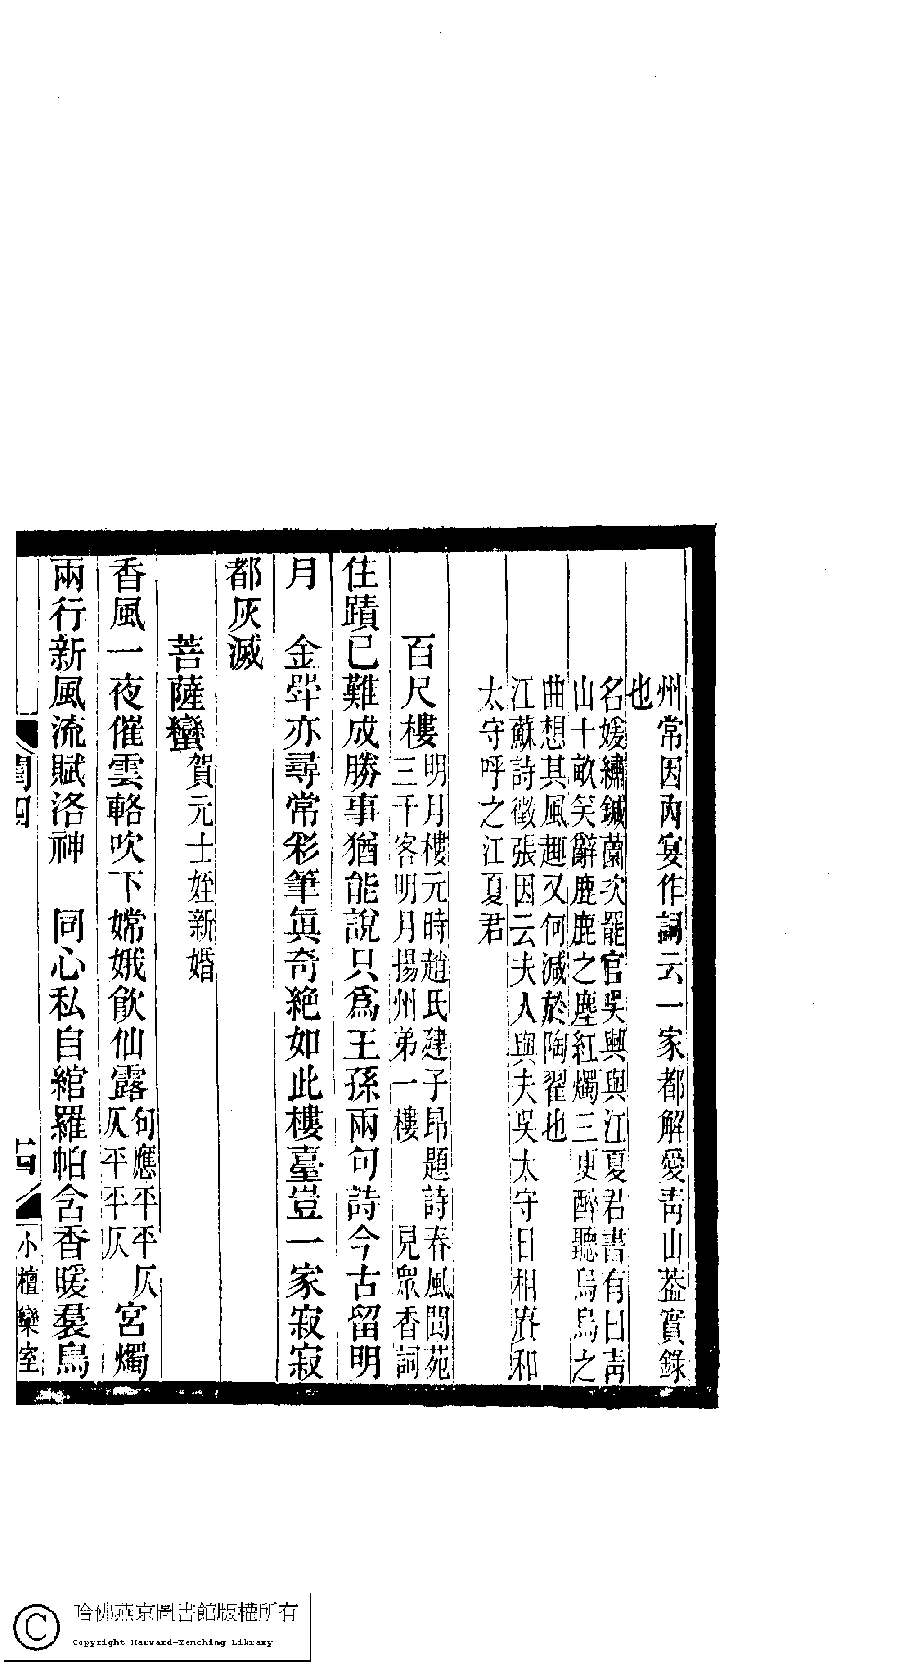 州常因內宴作詞云一家都解愛靑山葢實錄
也
名媛繡鍼蘭次罷官吳興與江夏君書有曰靑
山十畝笑辭鹿鹿之塵紅燭三更醉聽烏烏之
曲想其風趣又何減於陶翟也
江蘇詩徵張因云夫人與夫吳太守日相賡和
太守呼之江夏君
百尺樓
明月樓元時趙氏建子昂題詩春風閬苑
三千客明月揚州弟一樓 見眾香詞
佳蹟已難成勝事猶能說只爲王孫兩句詩今古留明
月 金斝亦尋常彩筆眞奇絶如此樓臺豈一家寂寂
都灰滅
菩薩蠻
賀元士姪新婚
香風一夜催雲輅吹下嫦娥飮仙露
句應平平仄
仄平平仄
宮燭
兩行新風流賦洛神 同心私自綰羅帕含香暖羣烏
閨四
十四
小檀欒室
哈佛燕京圖書館版權所有
Copyright Harvard-Yenching Library